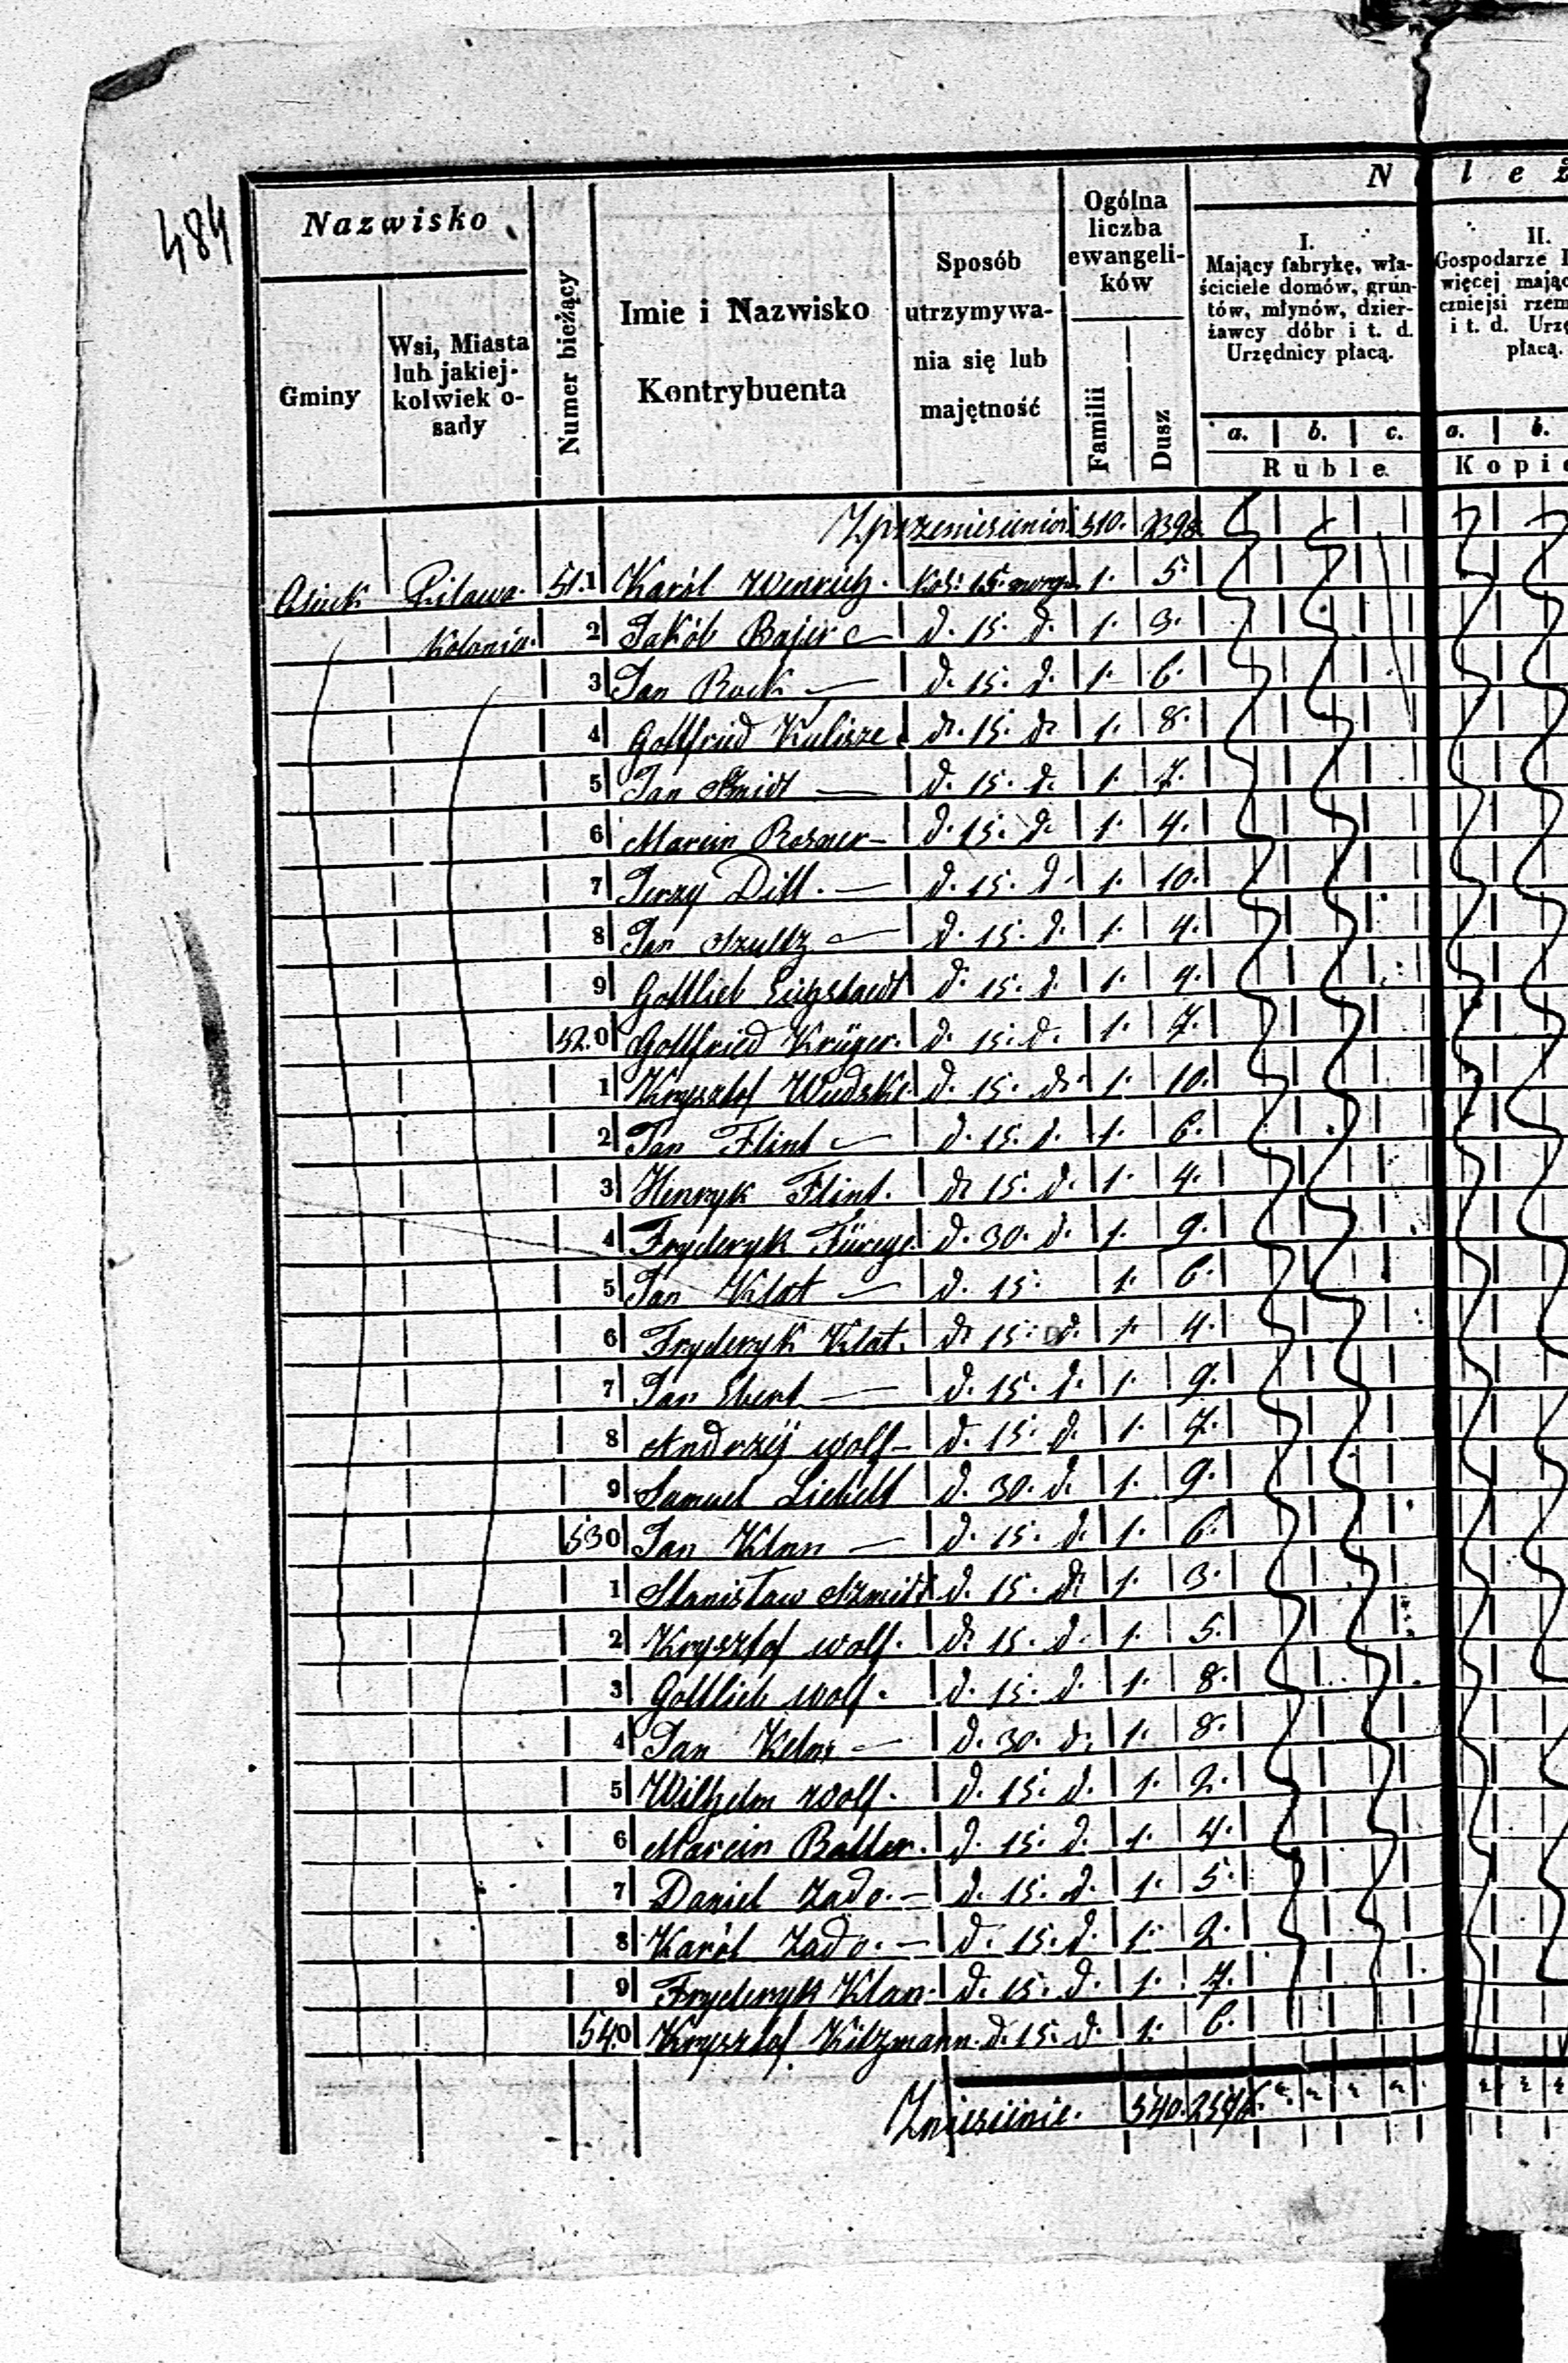 484
Nazwisko
Gminy
Wsi, Miasta lub jakiej-kolwiek o-sady
Numer bieżący
Imie i Nazwisko Kontrybuenta
Sposób utrzymywa-nia się lub majętność
Ogólna liczba ewangeli-ków
Familii
Dusz
N leż
I. Mający fabrykę, wła-ściciele domów, grun-tów, młynów, dzier-żawcy dóbr i t. d. Urzędnicy płacą.
II. Gospodarze więcej mając czniejsi rzem i t. d. Urzę płacą.
a. b. c. a. b.
Ruble Kopi
Z przeniesienia 510. 2398
Osieck Pilawa 51.1 Karól Wenrich. Kol: 15 morg. 1. 5.
Kolonia. 2 Jakób Bajer d. 15. d. 1. 3.
3 Jan Bock d. 15. d. 1. 6.
4 Gottfried Kulisze d. 15. d. 1. 8.
5 Jan Szmidt d. 15. d. 1. 7.
6 Marcin Rosner d. 15. d. 1. 4.
7 Jerzy Ditt. d. 15. d. 1. 10.
8 Jan Szultz d. 15. d. 1. 4.
9 Gottlieb d. 15. d. 1. 4.
52.0 Gottfried Krüger. d. 15. d. 1. 7.
1 Krysztof Wudzke d. 15. d. 1. 10.
2 Jan Flint d. 15. d. 1. 6.
3 Henryk Flint. d. 15. d. 1. 4.
4 Fryderyk d. 30. d. 1. 9.
5 Jan Klat d. 15. 1. 6.
6 Fryderyk Klat. d. 15. d. 1. 4.
7 Jan Ebert d. 15. d. 1. 9.
8 Andrzij Wolf d. 15. d. 1. 7.
9 Samuel Liebelt d. 30. d. 1. 9.
530 Jan Klan d. 15. d. 1. 6.
1 Stanisław Szmidt d. 15. d. 1. 3.
2 Krysztof Wolf. d. 15. d. 1. 5.
3 Gottlieb Wolf. d. 15. d. 1. 8.
4 Jan d. 30. d. 1. 8.
5 Wilhelm Wolf. d. 15. d. 1. 2.
6 Marcin Batler. d. 15. d. 1. 4.
7 Daniel Zado. d. 15. d. 1. 5.
8 Karól Zado. d. 15. d. 1. 2.
9 Fryderyk Klan. d. 15. d. 1. 7.
54.0 Krysztof Kitzmann. d. 15. d. 1. 6.
Zniesienie. 540.